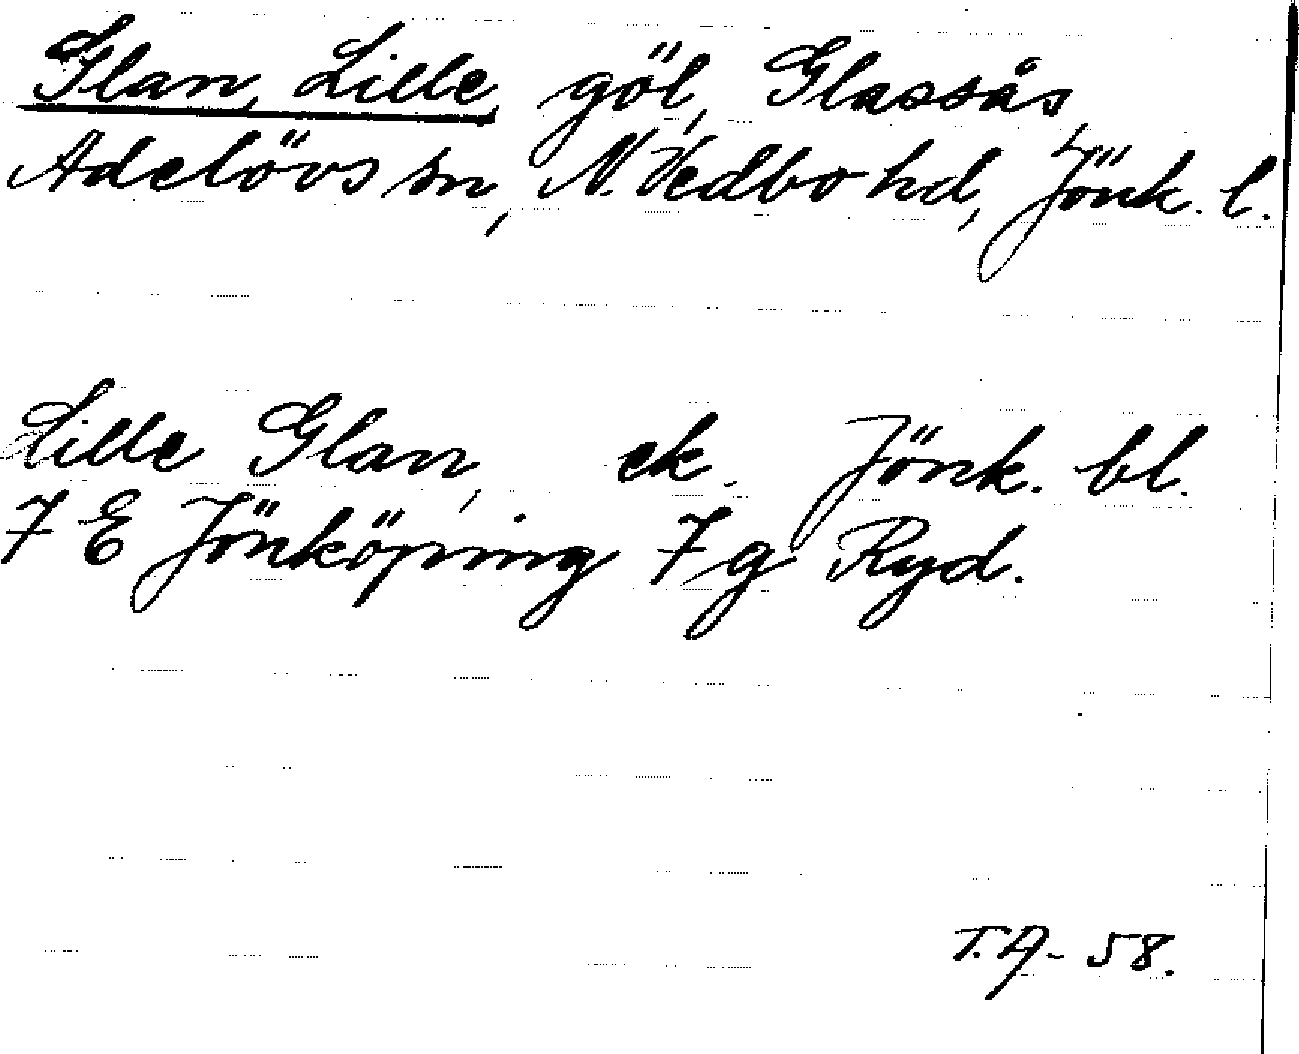 Glan, Lille, göl, Glassås,
Adelövs sn, N. Vedbo hd, Jönk. l.
Lille Glan, ek. Jönk. bl.
7 E Jönköping 7 g Ryd.
T.A - 58.